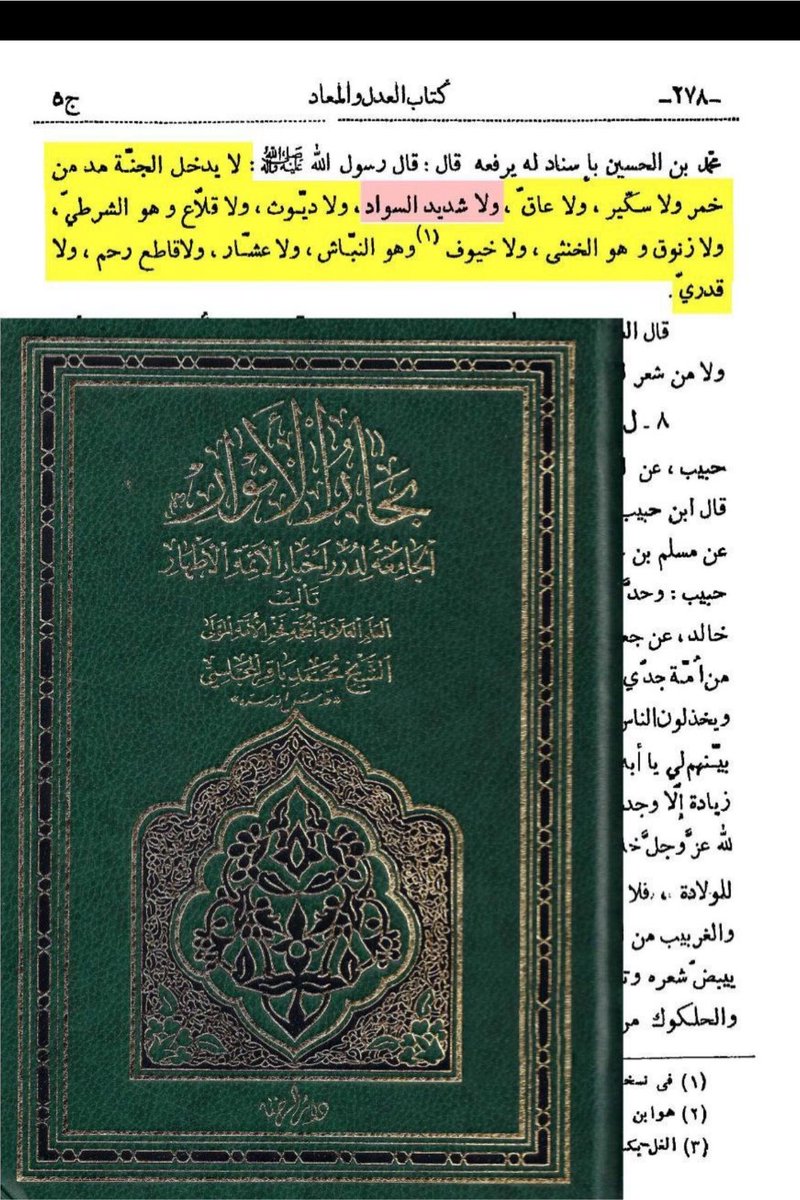 -٢٧٨- كتاب العدل والمعاد ج٥
محمّد بن الحسين بإسناد له يرفعه قال : قال رسول الله ﷺ : لا يدخل الجنّة مدمن
خمر ولا سكّير ، ولا عاقّ ، ولا شديد السواد ، ولا ديّوث ، ولا قلّاع و هو الشرطيّ ،
ولا زنوق و هو الخنثى ، ولا خيوف (١) وهو النبّاش ، ولا عشّار ، ولا قاطع رحم ، ولا
قدريّ .
قال
ولا من شعر
٨ - ل
حبيب ، عن
قال ابن حبيب
عن مسلم بن
حبيب : وحدّ
خالد ، عن جع
من اُمّة جدّي
ويخذلون الناس
بيّنهم لي يا أبه
زيادة إلّا وجد
لله عزَّوجلَّ خ
للولادة ،، فلا
والغربيب من
يبيضّ شعره و
والحلكوك مر
(١) فى نسخ
(٢) هو ابن
(٣)
بحار الأنوار
الجامعة لدرر أخبار الأئمة الأطهار
تأليف
العلم العلامة الحجة فخر الأمة المولى
الشيخ محمد باقر المجلسي